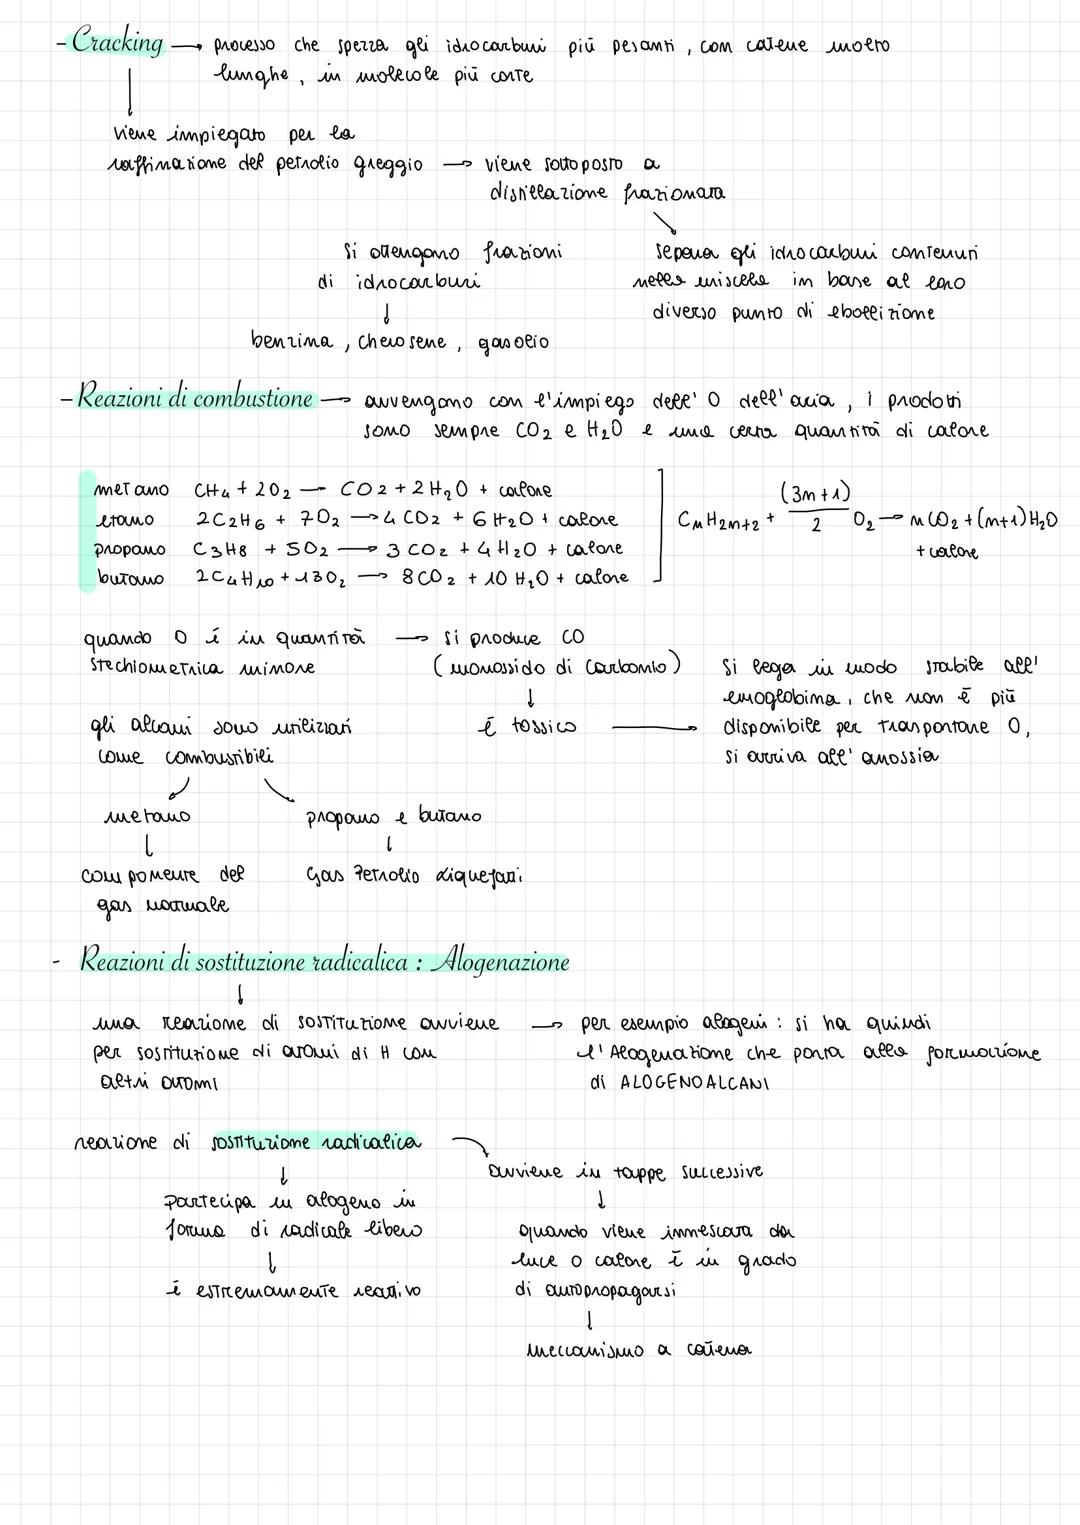 - Cracking → processo che spezza gli idrocarburi più pesanti, con catene molto
lunghe, in molecole più corte
viene impiegato per la
raffinazione del petrolio greggio → viene sottoposto a
distillazione frazionata
si ottengono frazioni
di idrocarburi
↓
benzina, cherosene, gasolio
separa gli idrocarburi contenuti
nella miscela in base al loro
diverso punto di ebollizione
- Reazioni di combustione → avvengono con l'impiego dell' O dell'aria, i prodotti
sono sempre CO2 e H2O e una certa quantità di calore
metano CH4 + 2O2 → CO2 + 2H2O + calore
etano 2C2H6 + 7O2 → 4CO2 + 6H2O + calore
propano C3H8 + 5O2 → 3CO2 + 4H2O + calore
butano 2C4H10 + 13O2 → 8CO2 + 10H2O + calore
CnH2n+2 + (3n+1)/2 O2 → nCO2 + (n+1)H2O
+ calore
quando O è in quantità → si produce CO
stechiometrica minore (monossido di Carbonio)
↓
è tossico →
si lega in modo stabile all'
emoglobina, che non è più
disponibile per trasportare O,
si arriva all'anossia
gli alcani sono utilizzati
come combustibili
metano
↓
componente del
gas normale
propano e butano
↓
Gas Petrolio Liquefatti
- Reazioni di sostituzione radicalica : Alogenazione
↓
una reazione di sostituzione avviene → per esempio alogeni : si ha quindi
per sostituzione di atomi di H con l'Alogenazione che porta alla formazione
altri atomi di ALOGENOALCANI
reazione di sostituzione radicalica
↓
partecipa un alogeno in
forma di radicale libero
↓
è estremamente reattivo
avviene in tappe successive
↓
quando viene innescata da
luce o calore è in grado
di autopropagarsi
↓
meccanismo a catena